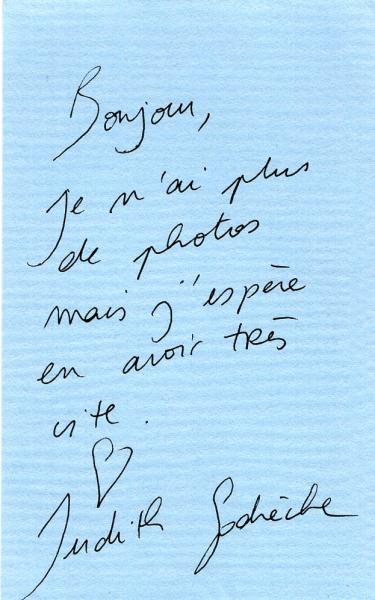 Bonjour,
Je n'ai plus
de photos
mais j'espère
en avoir très
vite.
Judith Godrèche